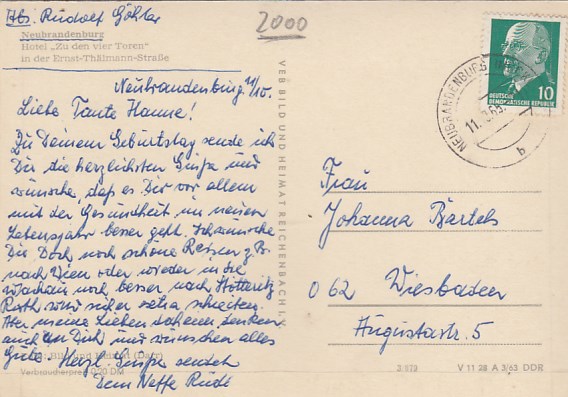 Abs. Rudolf Göhler
2000
Neubrandenburg
Hotel „Zu den vier Toren"
in der Ernst-Thälmann-Straße
Neubrandenburg,
Liebe Tante Hanne!
Zu Deinem Geburtstag sende ich
Dir die herzlichsten Grüße und
wünsche, daß es Dir vor allem
mit der Gesundheit im neuen
Lebensjahr besser geht. Ich wünsche
Dir Doch noch schöne Reisen z. B.
nach Wien oder wieder in die
Wachau noch besser nach
Ruth wird sicher extra schreiben.
Alle meine Lieben daheim denken
auch an Dich und wünschen alles
Gute. Herzl. Grüße sendet
Dein Neffe Rudi
Verbraucherpreis 0,20 DM
VEB BILD UND HEIMAT REICHENBACH I. V.
DEUTSCHE
DEMOKRATISCHE REPUBLIK
10
NEUBRANDENBURG
11.3.65
b
Frau
Johanna Bartels
062 Wiesbaden
Augustastr. 5
V 11 28 A 3/63 DDR